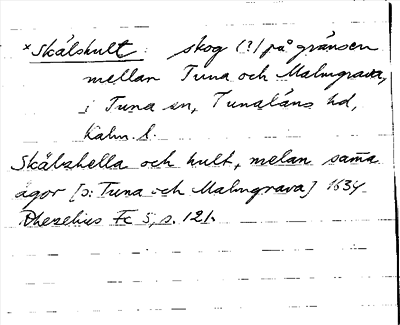 *Skälskult: skog (?) på gränsen
mellan Tuna och Malmgrava,
i Tuna sn, Tunaläns hd,
kalm. l.
Skälzhella och hult, melan sam̄a
ägor [ɔ: Tuna och Malmgrava] 1634
Rhezelius Fc 5, s. 121.